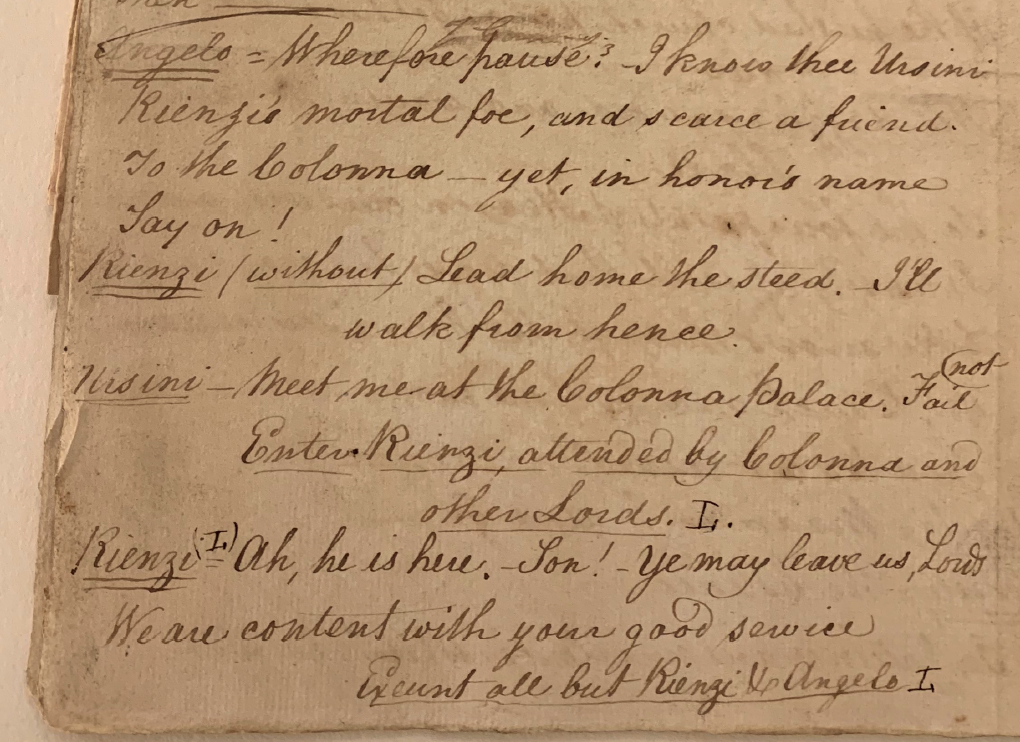 Angelo = Wherefore pause? - I know thee Ursini
Rienzi's mortal foe, and scarce a friend.
To the Colonna - yet, in honor's name
Say on!
Rienzi (without) Lead home the steed. - I'll
walk from hence.
Ursini - Meet me at the Colonna Palace. Fail not
Enter Rienzi, attended by Colonna and
other Lords. L.
Rienzi (L) = Ah, he is here. - Son! - Ye may leave us, Lords
We are content with your good service
Exeunt all but Rienzi & Angelo L